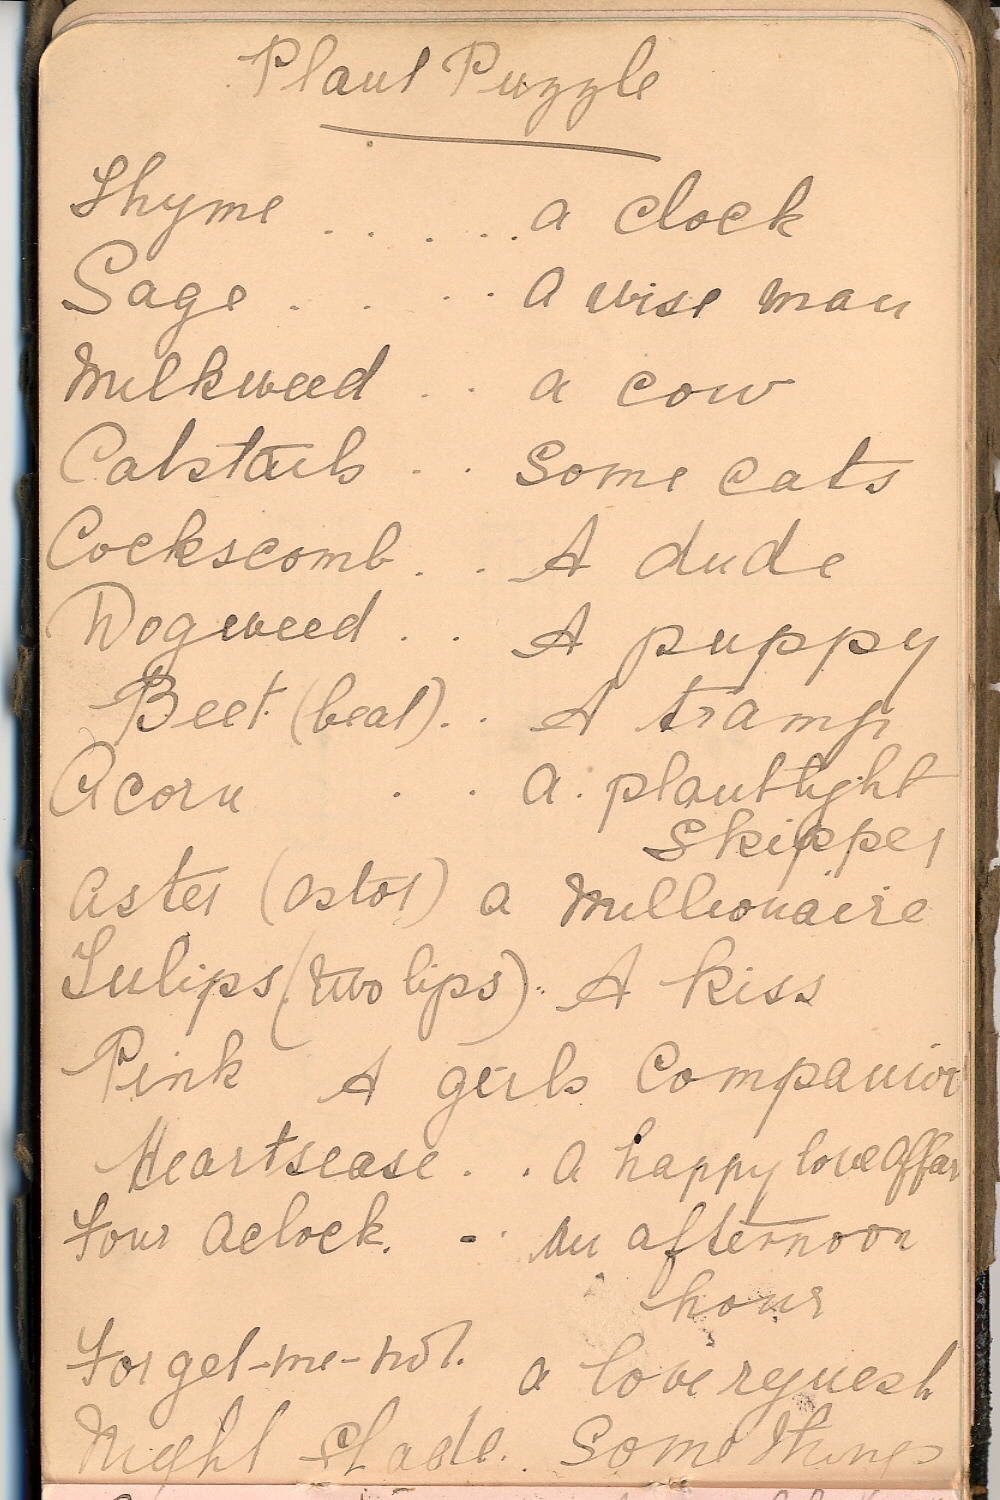 Plant Puzzle
Thyme ...... a clock
Sage .... A wise man
Milkweed .. a cow
Catstails .. Some cats
Cockscomb .. A dude
Dogweed .. A puppy
Beet (beat) .. A tramp
Acorn .. A. plantlight
Skipper
Aster (Astor) a Millionaire
Tulips (two lips) .. A kiss
Pink A girls Companion
Heartsease .. A happy love affair
Four Aclock. - . An afternoon
hour
Forget-me-not. a love request
Night Shade. Some Things